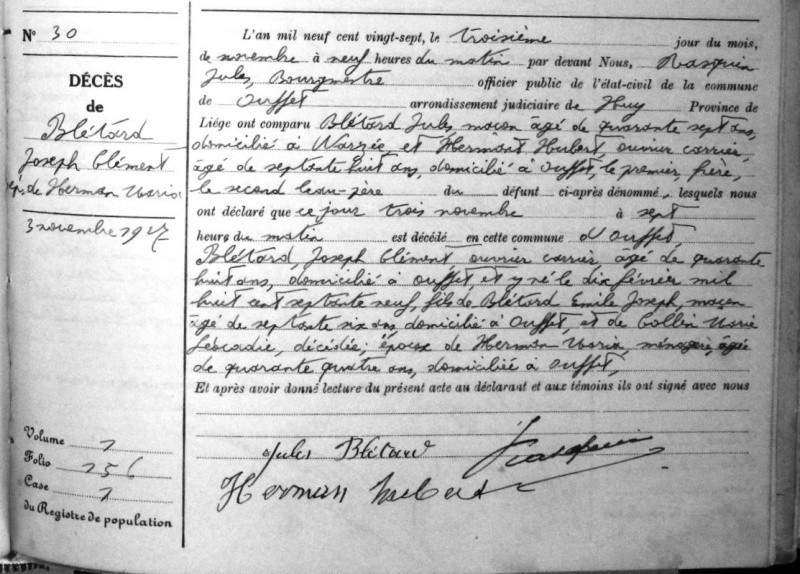 N° 30
DÉCÈS
de
Blétard
Joseph Clément
ép. de Herman Maria
3 novembre 1927
Volume 1
Folio 256
Case 1
du Registre de population
L'an mil neuf cent vingt-sept, le troisième jour du mois,
de novembre à neuf heures du matin par devant Nous, Rasquin
Jules, Bourgmestre officier public de l'état-civil de la commune
de Ouffet arrondissement judiciaire de Huy Province de
Liége ont comparu Blétard Jules, maçon âgé de quarante sept ans,
domicilié à Warzée et Hermant Hubert, ouvrier carrier,
âgé de septante huit ans, domicilié à Ouffet, le premier, frère,
le second beau-père du défunt ci-après dénommé, lesquels nous
ont déclaré que ce jour trois novembre à sept
heure du matin est décédé en cette commune d'Ouffet,
Blétard, Joseph Clément ouvrier carrier, âgé de quarante
huit ans, domicilié à Ouffet, et y né le dix février mil
huit cent septante neuf, fils de Blétard Emile Joseph, maçon
âgé de septante six ans, domicilié à Ouffet, et de Collin Marie
Léocadie, décédée; époux de Herman Maria, ménagère, âgée
de quarante quatre ans, domiciliée à Ouffet,
Et après avoir donné lecture du présent acte au déclarant et aux témoins ils ont signé avec nous
Jules Blétard JRasquin
Herman hubert